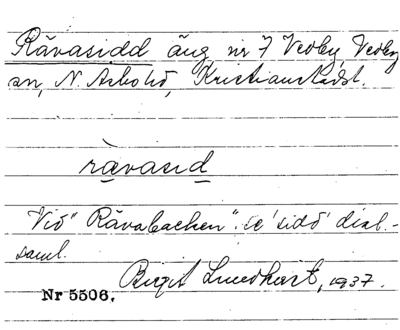 Rävasidd äng nr 7 Vedby Vedby
sn, N. Åsbo hd, Kristianstads l.
rävasid
Vid "Rävabacken". se 'sidd' dial.-
saml.
Birgit Lundkvist, 1937.
Nr 5506.